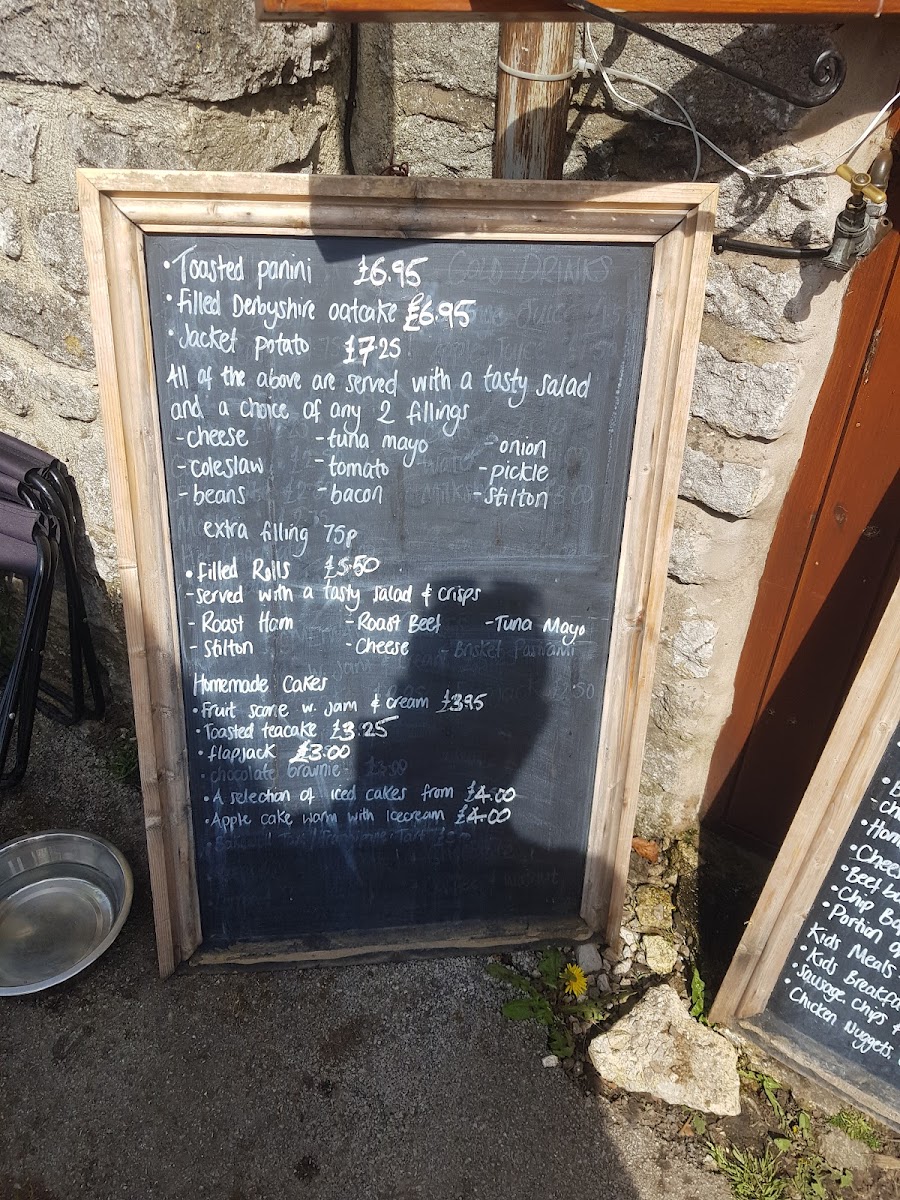 •Toasted panini £6.95
•Filled Derbyshire oatcake £6.95
•Jacket potato £7.25
All of the above are served with a tasty salad
and a choice of any 2 fillings
-cheese -tuna mayo -onion
-coleslaw -tomato -pickle
-beans -bacon -stilton
extra filling 75p
•filled Rolls £5.50
-served with a tasty salad & crisps
-Roast Ham -Roast Beef -Tuna Mayo
-Stilton -Cheese -Brisket Pastrami
Homemade Cakes
•Fruit scone w. jam & cream £3.95
•Toasted teacake £3.25
•flapjack £3.00
•chocolate brownie
•A selection of iced cakes from £4.00
•Apple cake warm with icecream £4.00
COLD DRINKS
•Chip
•Portion
Kids Meals
•Kids
•Sausage. Chips
Chicken Nuggets.